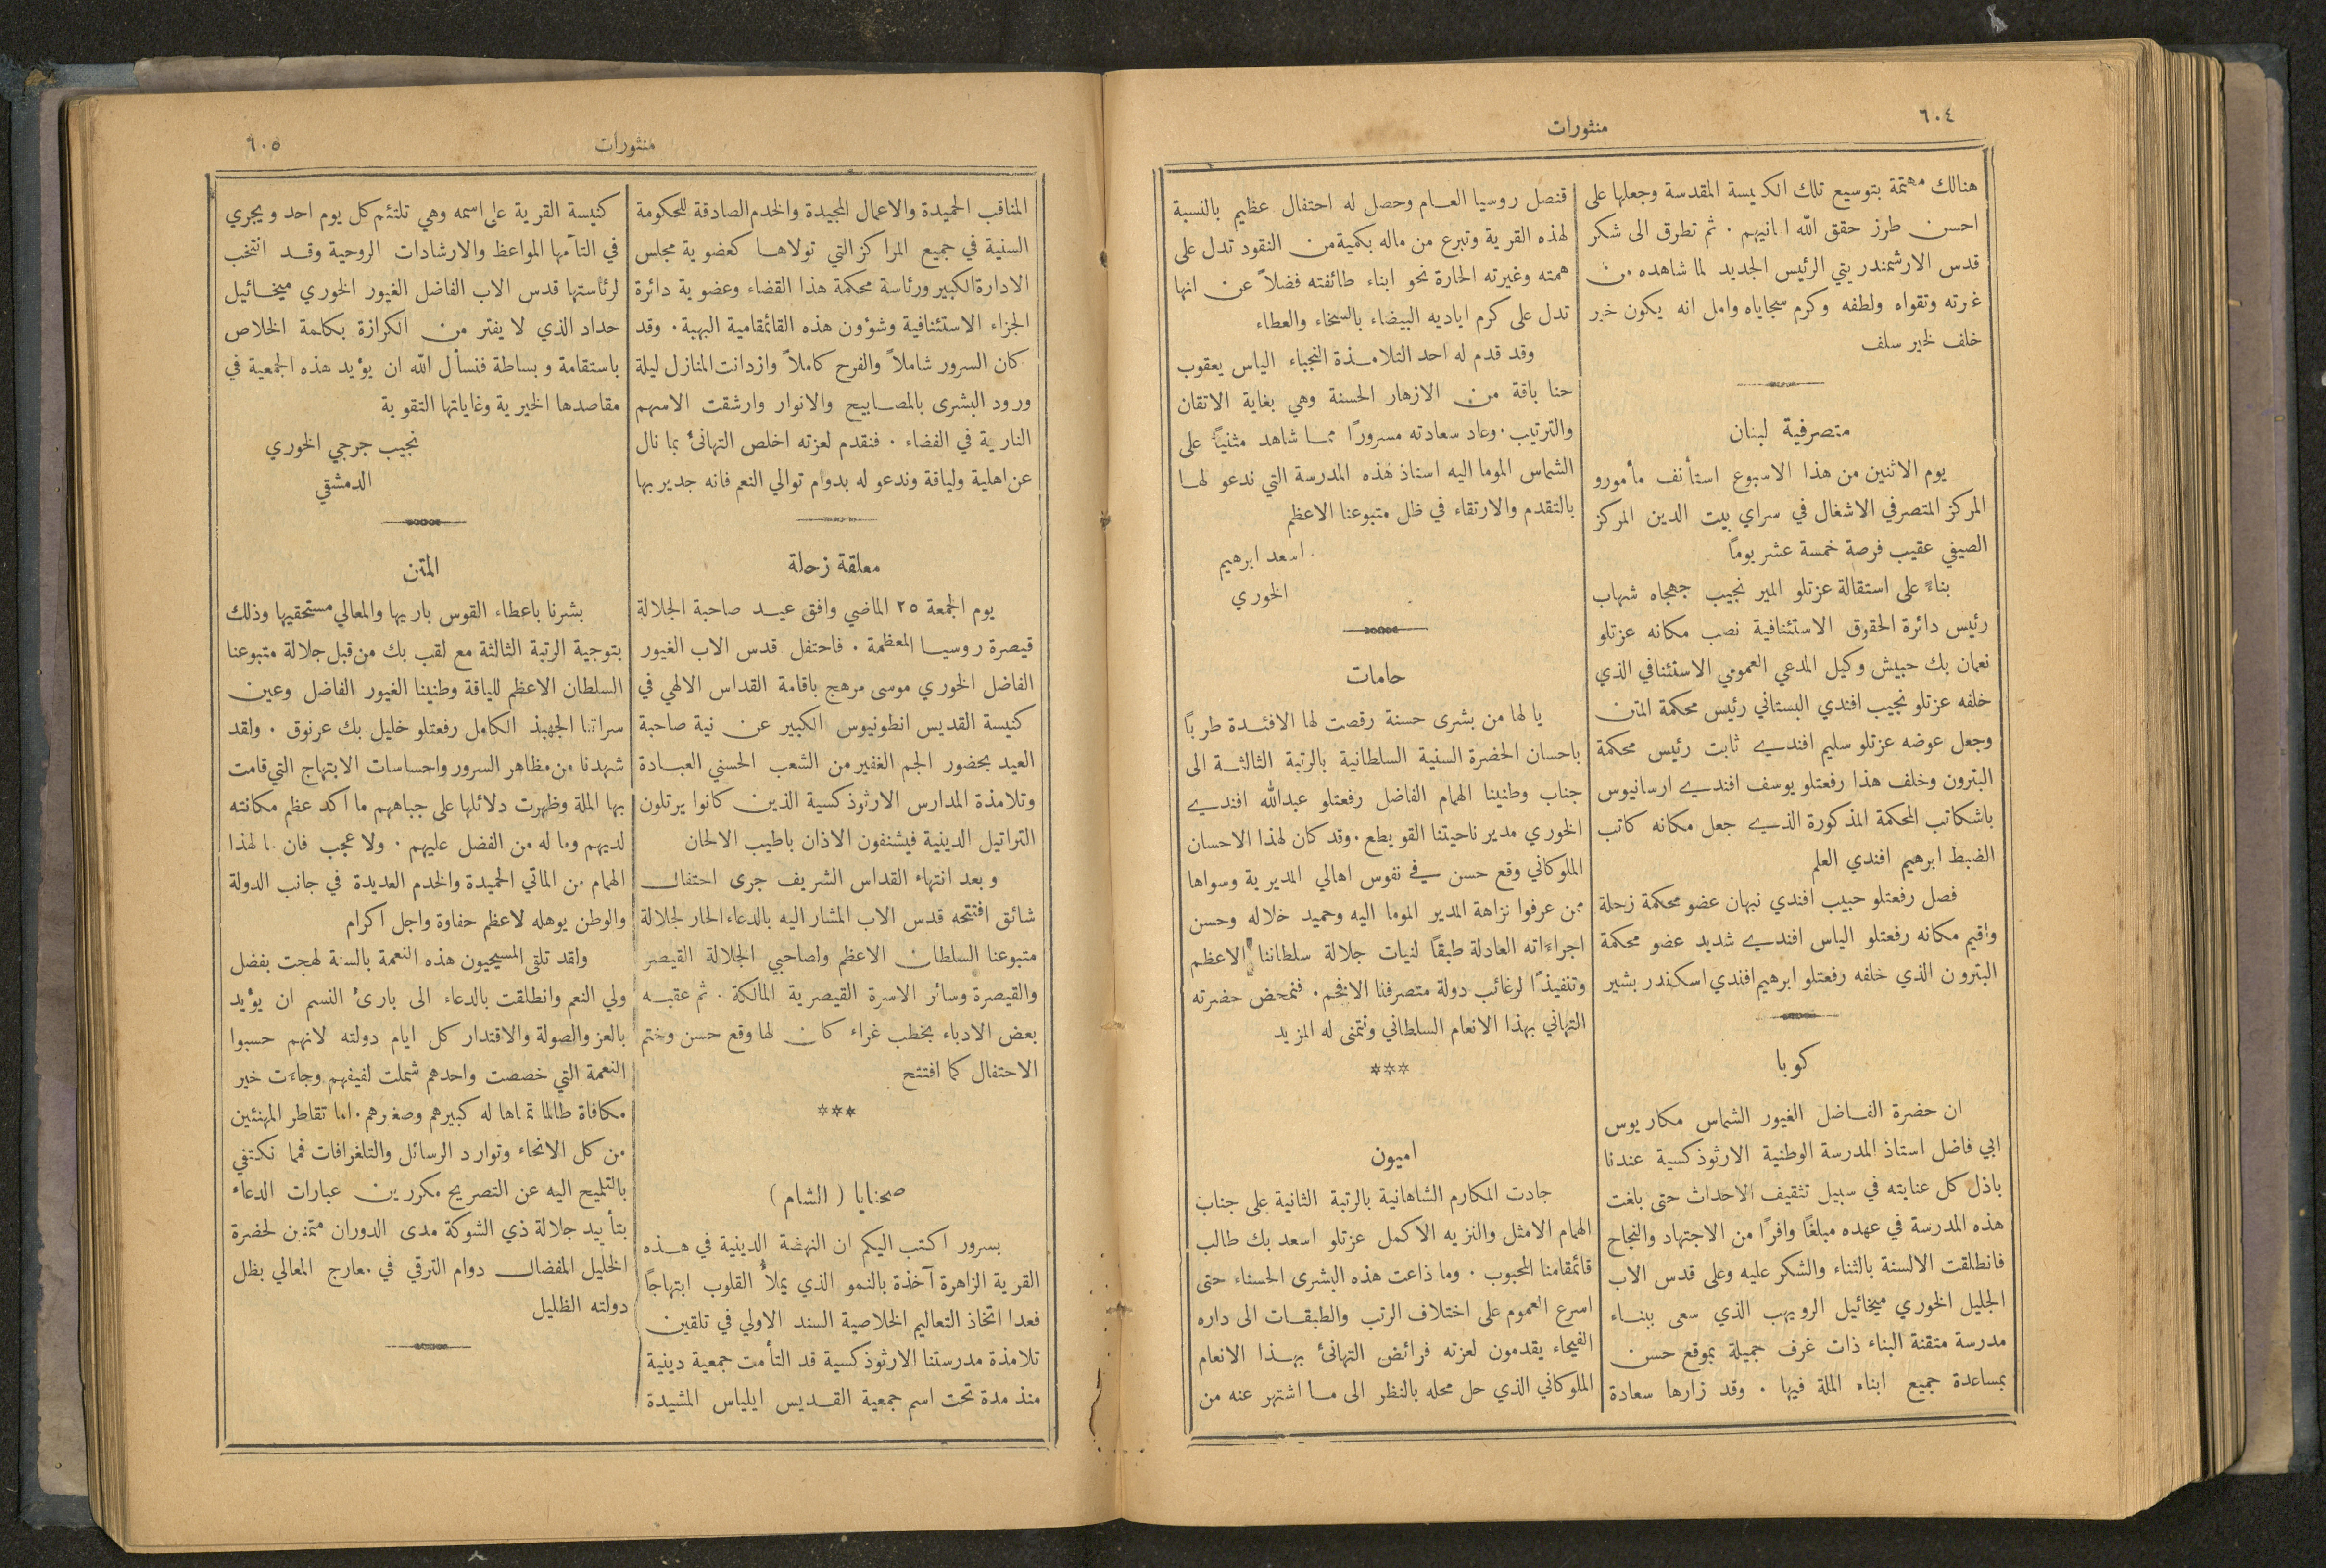 ٦٠٤
منثورات
هنالك مهتمة بتوسيع تلك الكنيسة المقدسة وجعلها على
احسن طرز حقق الله امانيهم . ثم تطرق الى شكر
قدس الارشمندريتي الرئيس الجديد لما شاهده من
غرته وتقواه ولطفه وكرم سجاياه وامل انه يكون خير
خلف لخير سلف
متصرفية لبنان
يوم الاثنين من هذا الاسبوع استأنف مأمورو
المركز المتصرفي الاشغال في سراي بيت الدين المركز
الصيفي عقيب فرصة خمسة عشر يوماً
بناءً على استقالة عزتلو المير نجيب جهجاه شهاب
رئيس دائرة الحقوق الاستئنافية نصب مكانه عزتلو
نعمان بك حبيش وكيل المدعي العمومي الاستئنافي الذي
خلفه عزتلو نجيب افندي البستاني رئيس محكمة المتن
وجعل عوضه عزتلو سليم افندي ثابت رئيس محكمة
البترون وخلف هذا رفعتلو يوسف افندي ارسانيوس
باشكاتب المحكمة المذكورة الذي جعل مكانه كاتب
الضبط ابرهيم افندي العلم
فصل رفعتلو حبيب افندي نبهان عضو محكمة زحلة
واقيم مكانه رفعتلو الياس افندي شديد عضو محكمة
البترون الذي خلفه رفعتلو ابرهيم افندي اسكندر بشير
كوبا
ان حضرة الفاضل الغيور الشماس مكاريوس
ابي فاضل استاذ المدرسة الوطنية الارثوذكسية عندنا
باذل كل عنايته في سبيل تثقيف الاحداث حتى بلغت
هذه المدرسة في عهده مبلغاً وافرًا من الاجتهاد والنجاح
فانطلقت الالسنة بالثناء والشكر عليه وعلى قدس الاب
الجليل الخوري ميخائيل الرويهب الذي سعى ببناء
مدرسة متقنة البناء ذات غرف جميلة بموقع حسن
بمساعدة جميع ابناء الملة فيها . وقد زارها سعادة
قنصل روسيا العام وحصل له احتفال عظيم بالنسبة
لهذه القرية وتبرع من ماله بكمية من النقود تدل على
همته وغيرته الحارة نحو ابناء طائفته فضلاً عن انها
تدل على كرم اياديه البيضاء بالسخاء والعطاء
وقد قدم له احد التلامذة النجباء الياس يعقوب
حنا باقة من الازهار الحسنة وهي بغاية الاتقان
والترتيب . وعاد سعادته مسرورًا مما شاهد مثنياً على
الشماس الموما اليه استاذ هذه المدرسة التي ندعو لها
بالتقدم والارتقاء في ظل متبوعنا الاعظم
اسعد ابرهيم
الخوري
حامات
يا لها من بشرى حسنة رقصت لها الافئدة طرباً
باحسان الحضرة السنية السلطانية بالرتبة الثالثة الى
جناب وطنينا الهمام الفاضل رفعتلو عبدالله افندي
الخوري مدير ناحيتنا القويطع . وقد كان لهذا الاحسان
الملوكاني وقع حسن في نفوس اهالي المديرية وسواها
ممن عرفوا نزاهة المدير الموما اليه وحميد خلاله وحسن
اجراءاته العادلة طبقاً لنيات جلالة سلطاننا الاعظم
وتنفيذًا لرغائب دولة متصرفنا الافخم . فنمحض حضرته
التهاني بهذا الانعام السلطاني ونتمنى له المزيد
***
اميون
جادت المكارم الشاهانية بالرتبة الثانية على جناب
الهمام الامثل والنزيه الاكمل عزتلو اسعد بك طالب
قائمقامنا المحبوب . وما ذاعت هذه البشرى الحسناء حتى
اسرع العموم على اختلاف الرتب والطبقات الى داره
الفيحاء يقدمون لعزته فرائض التهانئ بهذا الانعام
الملوكاني الذي حل محله بالنظر الى ما اشتهر عنه من
منثورات
٦٠٥
المناقب الحميدة والاعمال المجيدة والخدم الصادقة للحكومة
السنية في جميع المراكز التي تولاها كعضوية مجلس
الادارة الكبير ورئاسة محكمة هذا القضاء وعضوية دائرة
الجزاء الاستئنافية وشؤون هذه القائمقامية البهية . وقد
كان السرور شاملاً والفرح كاملاً وازدانت المنازل ليلة
ورود البشرى بالمصابيح والانوار وارشقت الاسهم
النارية في الفضاء . فنقدم لعزته اخلص التهانئ بما نال
عن اهلية ولياقة وندعو له بدوام توالي النعم فانه جدير بها
معلقة زحلة
يوم الجمعة ٢٥ الماضي وافق عيد صاحبة الجلالة
قيصرة روسيا المعظمة . فاحتفل قدس الاب الغيور
الفاضل الخوري موسى مرهج باقامة القداس الالهي في
كنيسة القديس انطونيوس الكبير عن نية صاحبة
العيد بحضور الجم الغفير من الشعب الحسني العبادة
وتلامذة المدارس الارثوذكسية الذين كانوا يرتلون
التراتيل الدينية فيشنفون الاذان باطيب الالحان
وبعد انتهاء القداس الشريف جرى احتفال
شائق افتتحه قدس الاب المشار اليه بالدعاء الحار لجلالة
متبوعنا السلطان الاعظم ولصاحبي الجلالة القيصر
والقيصرة وسائر الاسرة القيصرية المالكة . ثم عقبه
بعض الادباء بخطب غراء كان لها وقع حسن وختم
الاحتفال كما افتتح
***
صحنايا ( الشام )
بسرور اكتب اليكم ان النهضة الدينية في هذه
القرية الزاهرة آخذة بالنمو الذي يملأ القلوب ابتهاجاً
فعدا اتخاذ التعاليم الخلاصية السند الاولي في تلقين
تلامذة مدرستنا الارثوذكسية قد التأمت جمعية دينية
منذ مدة تحت اسم جمعية القديس ايلياس المشيدة
كنيسة القرية على اسمه وهي تلتئم كل يوم احد ويجري
في التآمها المواعظ والارشادات الروحية وقد انتخب
لرئاستها قدس الاب الفاضل الغيور الخوري ميخائيل
حداد الذي لا يفتر من الكرازة بكلمة الخلاص
باستقامة وبساطة فنسأل الله ان يؤيد هذه الجمعية في
مقاصدها الخيرية وغاياتها التقوية
نجيب جرجي الخوري
الدمشقي
المتن
بشرنا باعطاء القوس باريها والمعالي مستحقيها وذلك
بتوجية الرتبة الثالثة مع لقب بك من قبل جلالة متبوعنا
السلطان الاعظم للياقة وطنينا الغيور الفاضل وعين
سراتنا الجهبذ الكامل رفعتلو خليل بك عرنوق . ولقد
شهدنا من مظاهر السرور واحساسات الابتهاج التي قامت
بها الملة وظهرت دلائلها على جباههم ما اكد عظم مكانته
لديهم وما له من الفضل عليهم . ولا عجب فان ما لهذا
الهمام من الماتي الحميدة والخدم العديدة في جانب الدولة
والوطن يوهله لاعظم حفاوة واجل اكرام
ولقد تلقى المسيحيون هذه النعمة بالسنة لهجت بفضل
ولي النعم وانطلقت بالدعاء الى بارئ النسم ان يؤيد
بالعز والصولة والاقتدار كل ايام دولته لانهم حسبوا
النعمة التي خصصت واحدهم شملت لفيفهم وجاءت خير
مكافاة طالما تمناها له كبيرهم وصغيرهم . اما تقاطر المهنئين
من كل الانحاء وتوارد الرسائل والتلغرافات فمما نكتفي
بالتلميح اليه عن التصريح مكررين عبارات الدعاء
بتأييد جلالة ذي الشوكة مدى الدوران متمنين لحضرة
الخليل المفضال دوام الترقي في معارج المعالي بظل
دولته الظليل